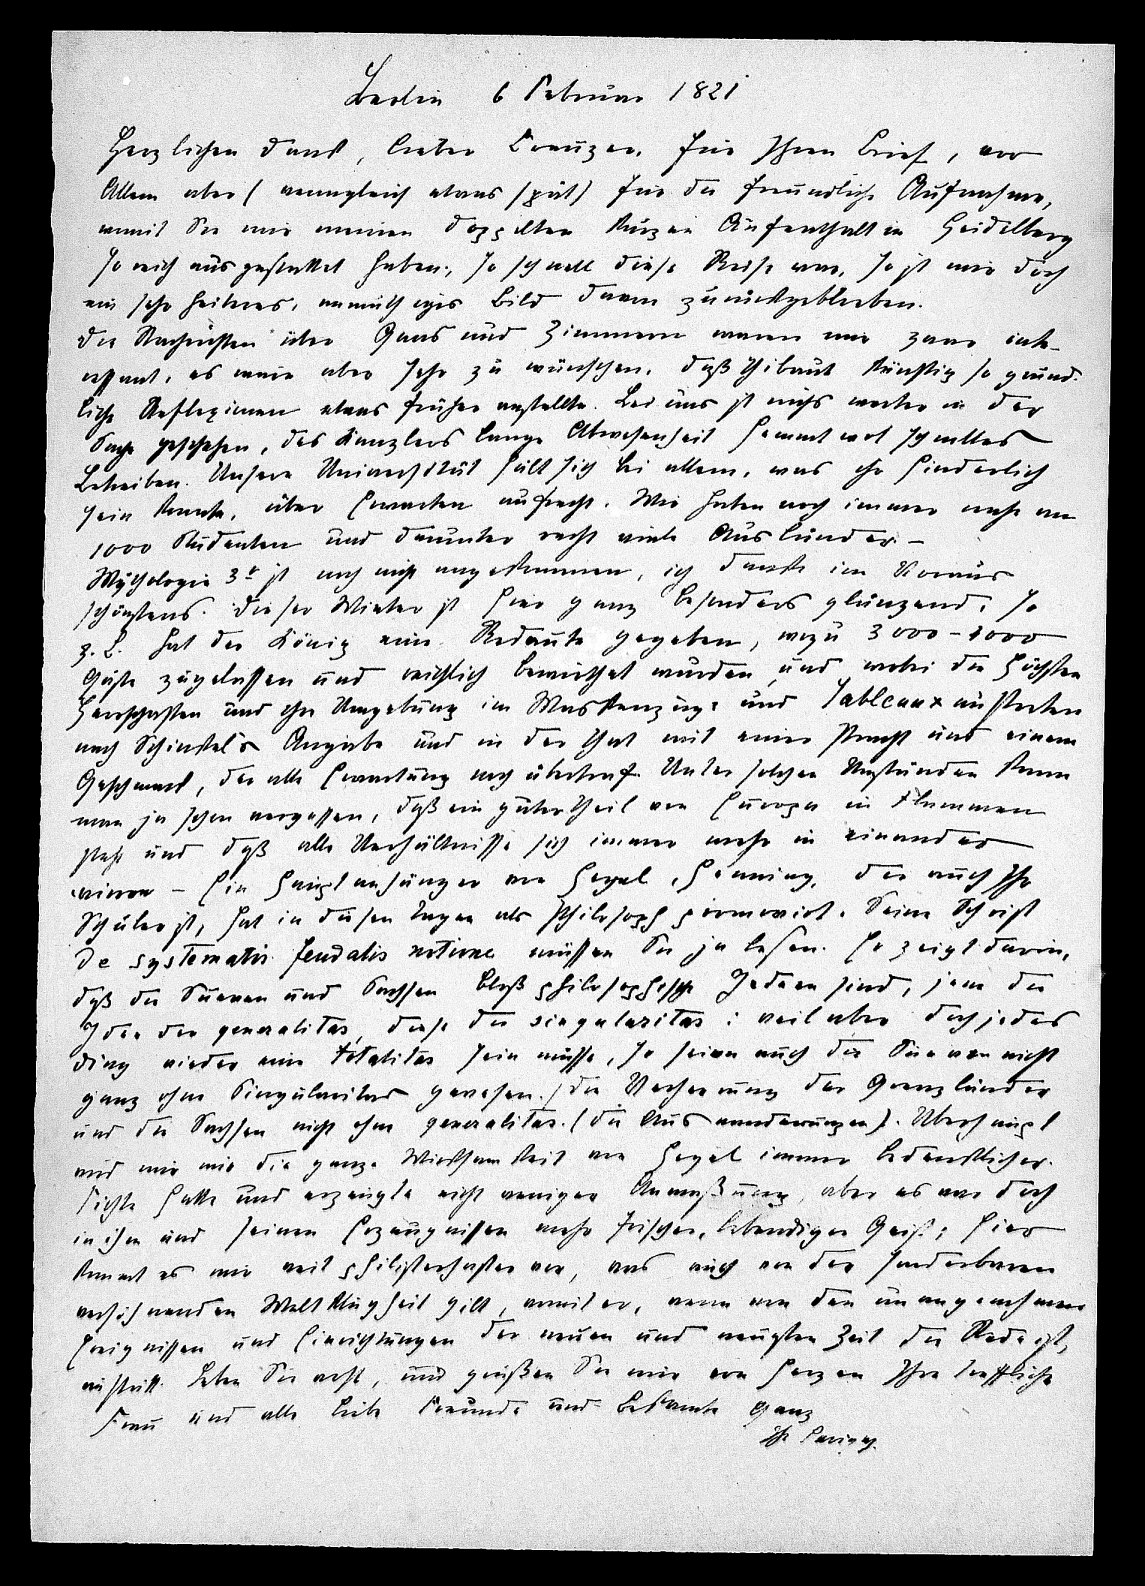 Berlin 6 Februar 1821
Herzlichen Dank, lieber Creuzer, für Ihren Brief, vor
Allem aber (wenngleich etwas spät) für die freundliche Aufnahme,
womit Sie mir meinen doppelten kurzen Aufenthalt in Heidelberg
so reich ausgestattet haben. So schnell diese Reise war, so ist mir doch
ein sehr heiteres, anmuthiges Bild davon zurückgeblieben.
Die Nachrichten über Gans und Zimmern waren mir zwar inte-
ressant, es wäre aber sehr zu wünschen, daß Thibaut künftig so gründ-
liche Reflexionen etwas früher anstellte. Bei uns ist nichts weiter in der
Sache geschehen, des Kanzlers lange Abwesenheit hemmt wol schnelles
Betreiben. Unsere Universität hält sich bei allem, was ihr hinderlich
sein konnte, über Erwarten aufrecht. Wir haben noch immer nahe an
1000 Studenten und darunter recht viele Ausländer. –
Mythologie 3r ist noch nicht angekommen, ich danke im Voraus
schönstens. Dieser Winter ist hier ganz besonders glänzend. So
z. B. hat der König eine Redoute gegeben, wozu 3000 – 4000
Gäste zugelassen und reichlich bewirthet wurden, und wobei die höchsten
Herrschaften und ihre Umgebung im Maskenzuge und Tableaux auftreten
nach Schinkel's Angabe und in der That mit einer Pracht und einem
Geschmack, der alle Erwartung noch übertraf. Unter solchen Umständen kann
man ja schon vergessen, daß ein guter Theil von Europa in Flammen
steht und daß alle Verhältnisse sich immer mehr in einander
wirren – Ein Hauptanhänger von Hegel, Henning, der auch Ihr
Schüler ist, hat in diesen Tagen als Philosoph promovirt. Seine Schrift
de systematis feudalis notione müssen Sie ja lesen. Er zeigt darin,
daß die Sueven und Sachsen bloß philosophische Ideen sind, jene die
Idee der generalitas, diese die singularitas: weil aber doch jedes
Ding wieder eine totalitas sein müsse, so seien auch die Sueven nicht
ganz ohne Singularitas gewesen (die Verheerung der Grenzländer
und die Sachsen nicht ohne generalitas. (die Auswanderungen). Überhaupt
wird mir die ganze Wirksamkeit von Hegel immer bedenklicher.
Fichte hatte und erzeugte nicht weniger Anmaßung, aber es war doch
in ihm und seinen Erzeugnissen mehr frischer, lebendiger Geist; hier
kommt es mir weit philisterhafter vor, was auch von der sonderbaren
versöhnenden Weltklugheit gilt, womit er, wenn von den unangenehmen
Ereignissen und Einrichtungen der neuen und neusten Zeit die Rede ist,
auftritt. Leben Sie wohl, und grüßen Sie mir von Herzen Ihre treffliche
Frau und alle liebe Freunde und Bekannte Ganz
Ihr Savigny.